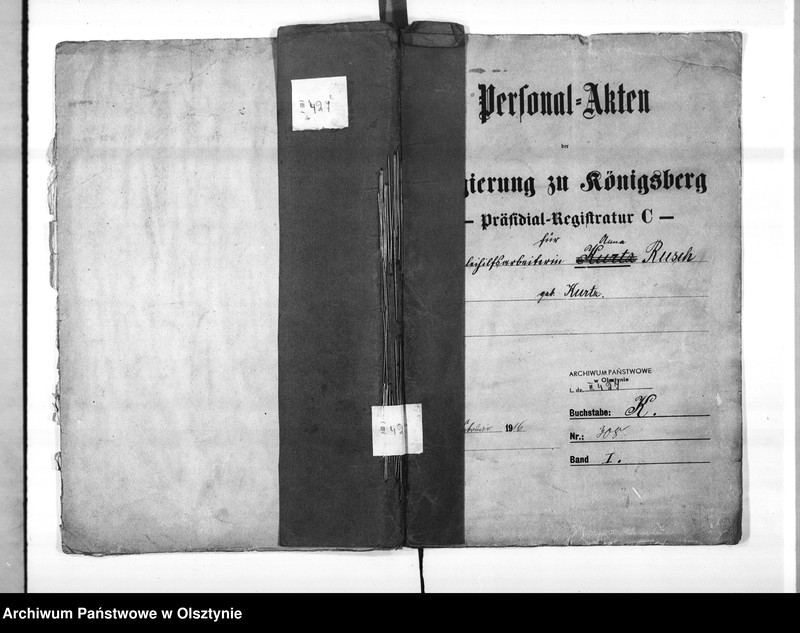 III 427
2
Personal=Akten
der
gierung zu Königsberg
— Präsidial-Registratur C —
für Anna
leihilfsarbeiterin Kurtz Rusch
geb. Kurtz.
ARCHIWUM PAŃSTWOWE
w Olsztynie
L. dz. III 427
Buchstabe: K.
1916
Nr.: 305
Band I.
III 42
Archiwum Państwowe w Olsztynie